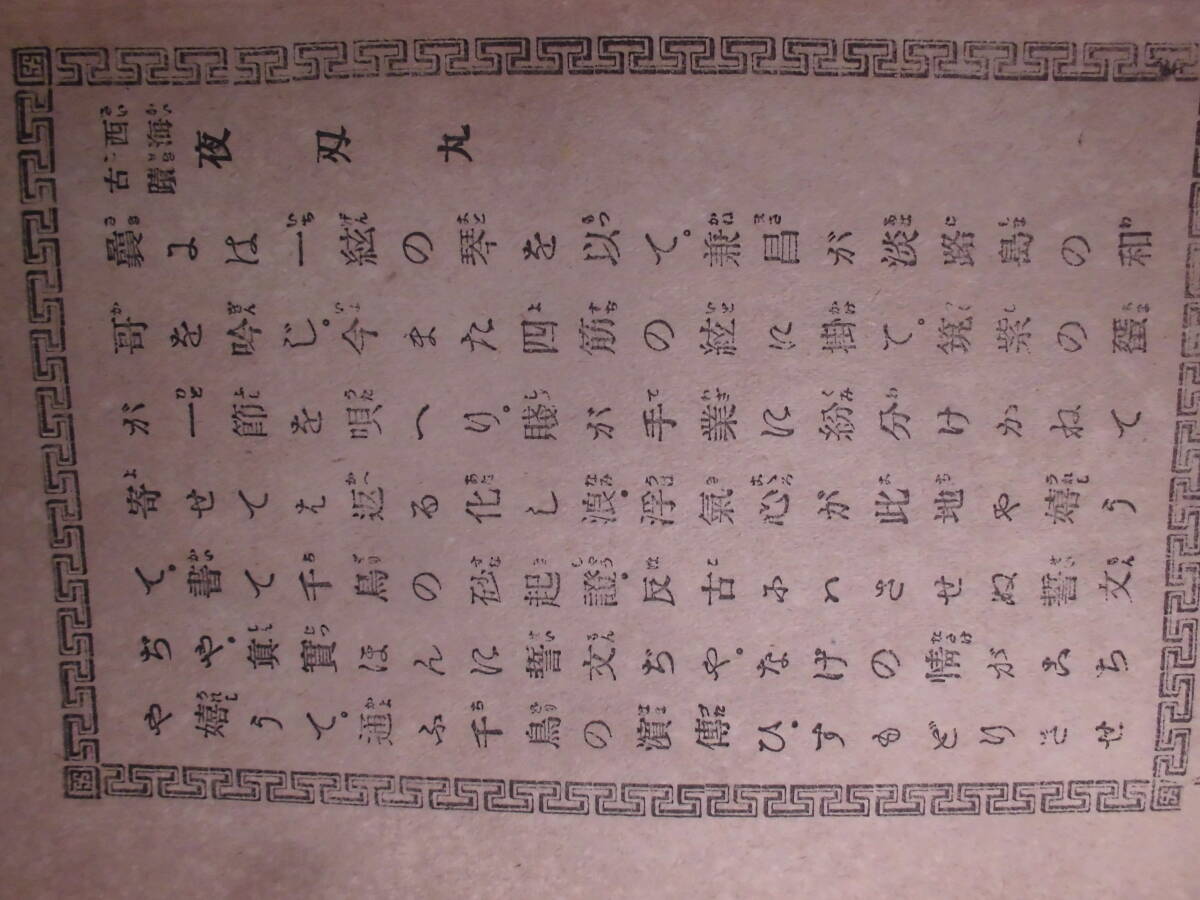 西海古蹟 夜刃丸
曩には一絃の琴を以て。兼昌が淡路島の和
哥を吟じ。今また四筋の絃に掛て。筑紫の蜑
が一節を唄へり。賤が手業に紛分けかねて
寄せては返る化し浪。浮氣心が此地や嬉う
て。書て千鳥の砂起證。反古にハさせぬ誓文
ぢや。真實ほんに誓文ぢや。なげの情がこち
や嬉うて。通ふ千鳥の濱傳ひ。すもどりさせ